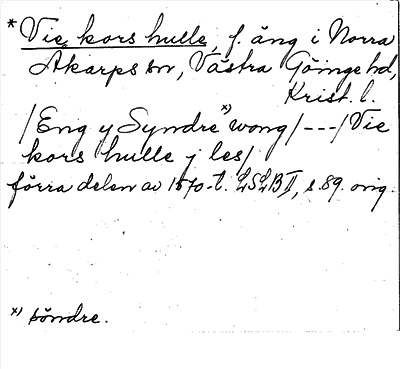 * Vie kors hulle, f. äng i Norra
Åkarps sn, Västra Göinge hd,
Krist. l.
/Eng y Syndre *) wong/---/Vie
kors hulle j les/
förra delen av 1570-t. LSLB II, s. 89. orig.
*) söndre.